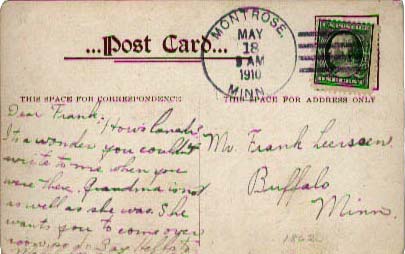 ...Post Card...
MONTROSE,
MAY
18
9 AM
1910
MINN.
THIS SPACE FOR CORRESPONDENCE
THIS SPACE FOR ADDRESS ONLY
Dear Frank: How's
Its a wonder you couldn't
write to me when you
were there. Grandma is not
as well as she was. She
wants you to come over
Mr. Frank Leerssen
Buffalo
Minn.